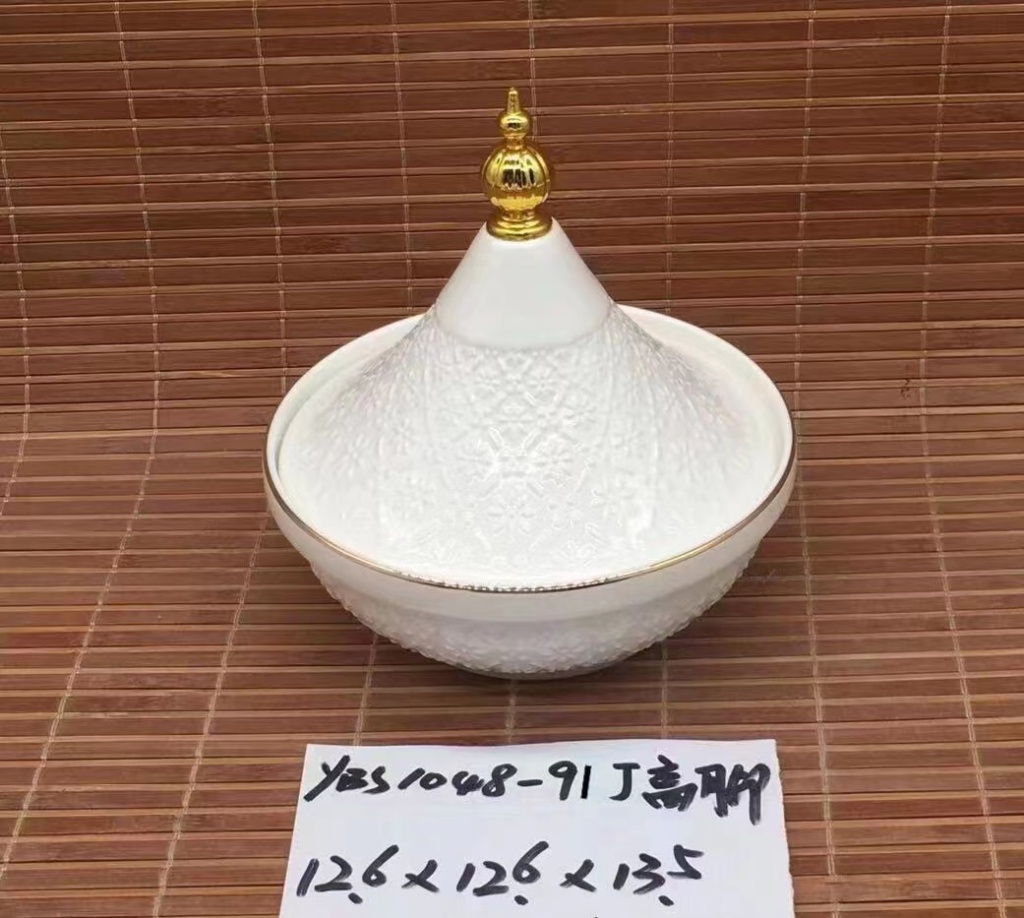 YBS1048-91J高脚
12.6x12.6x13.5